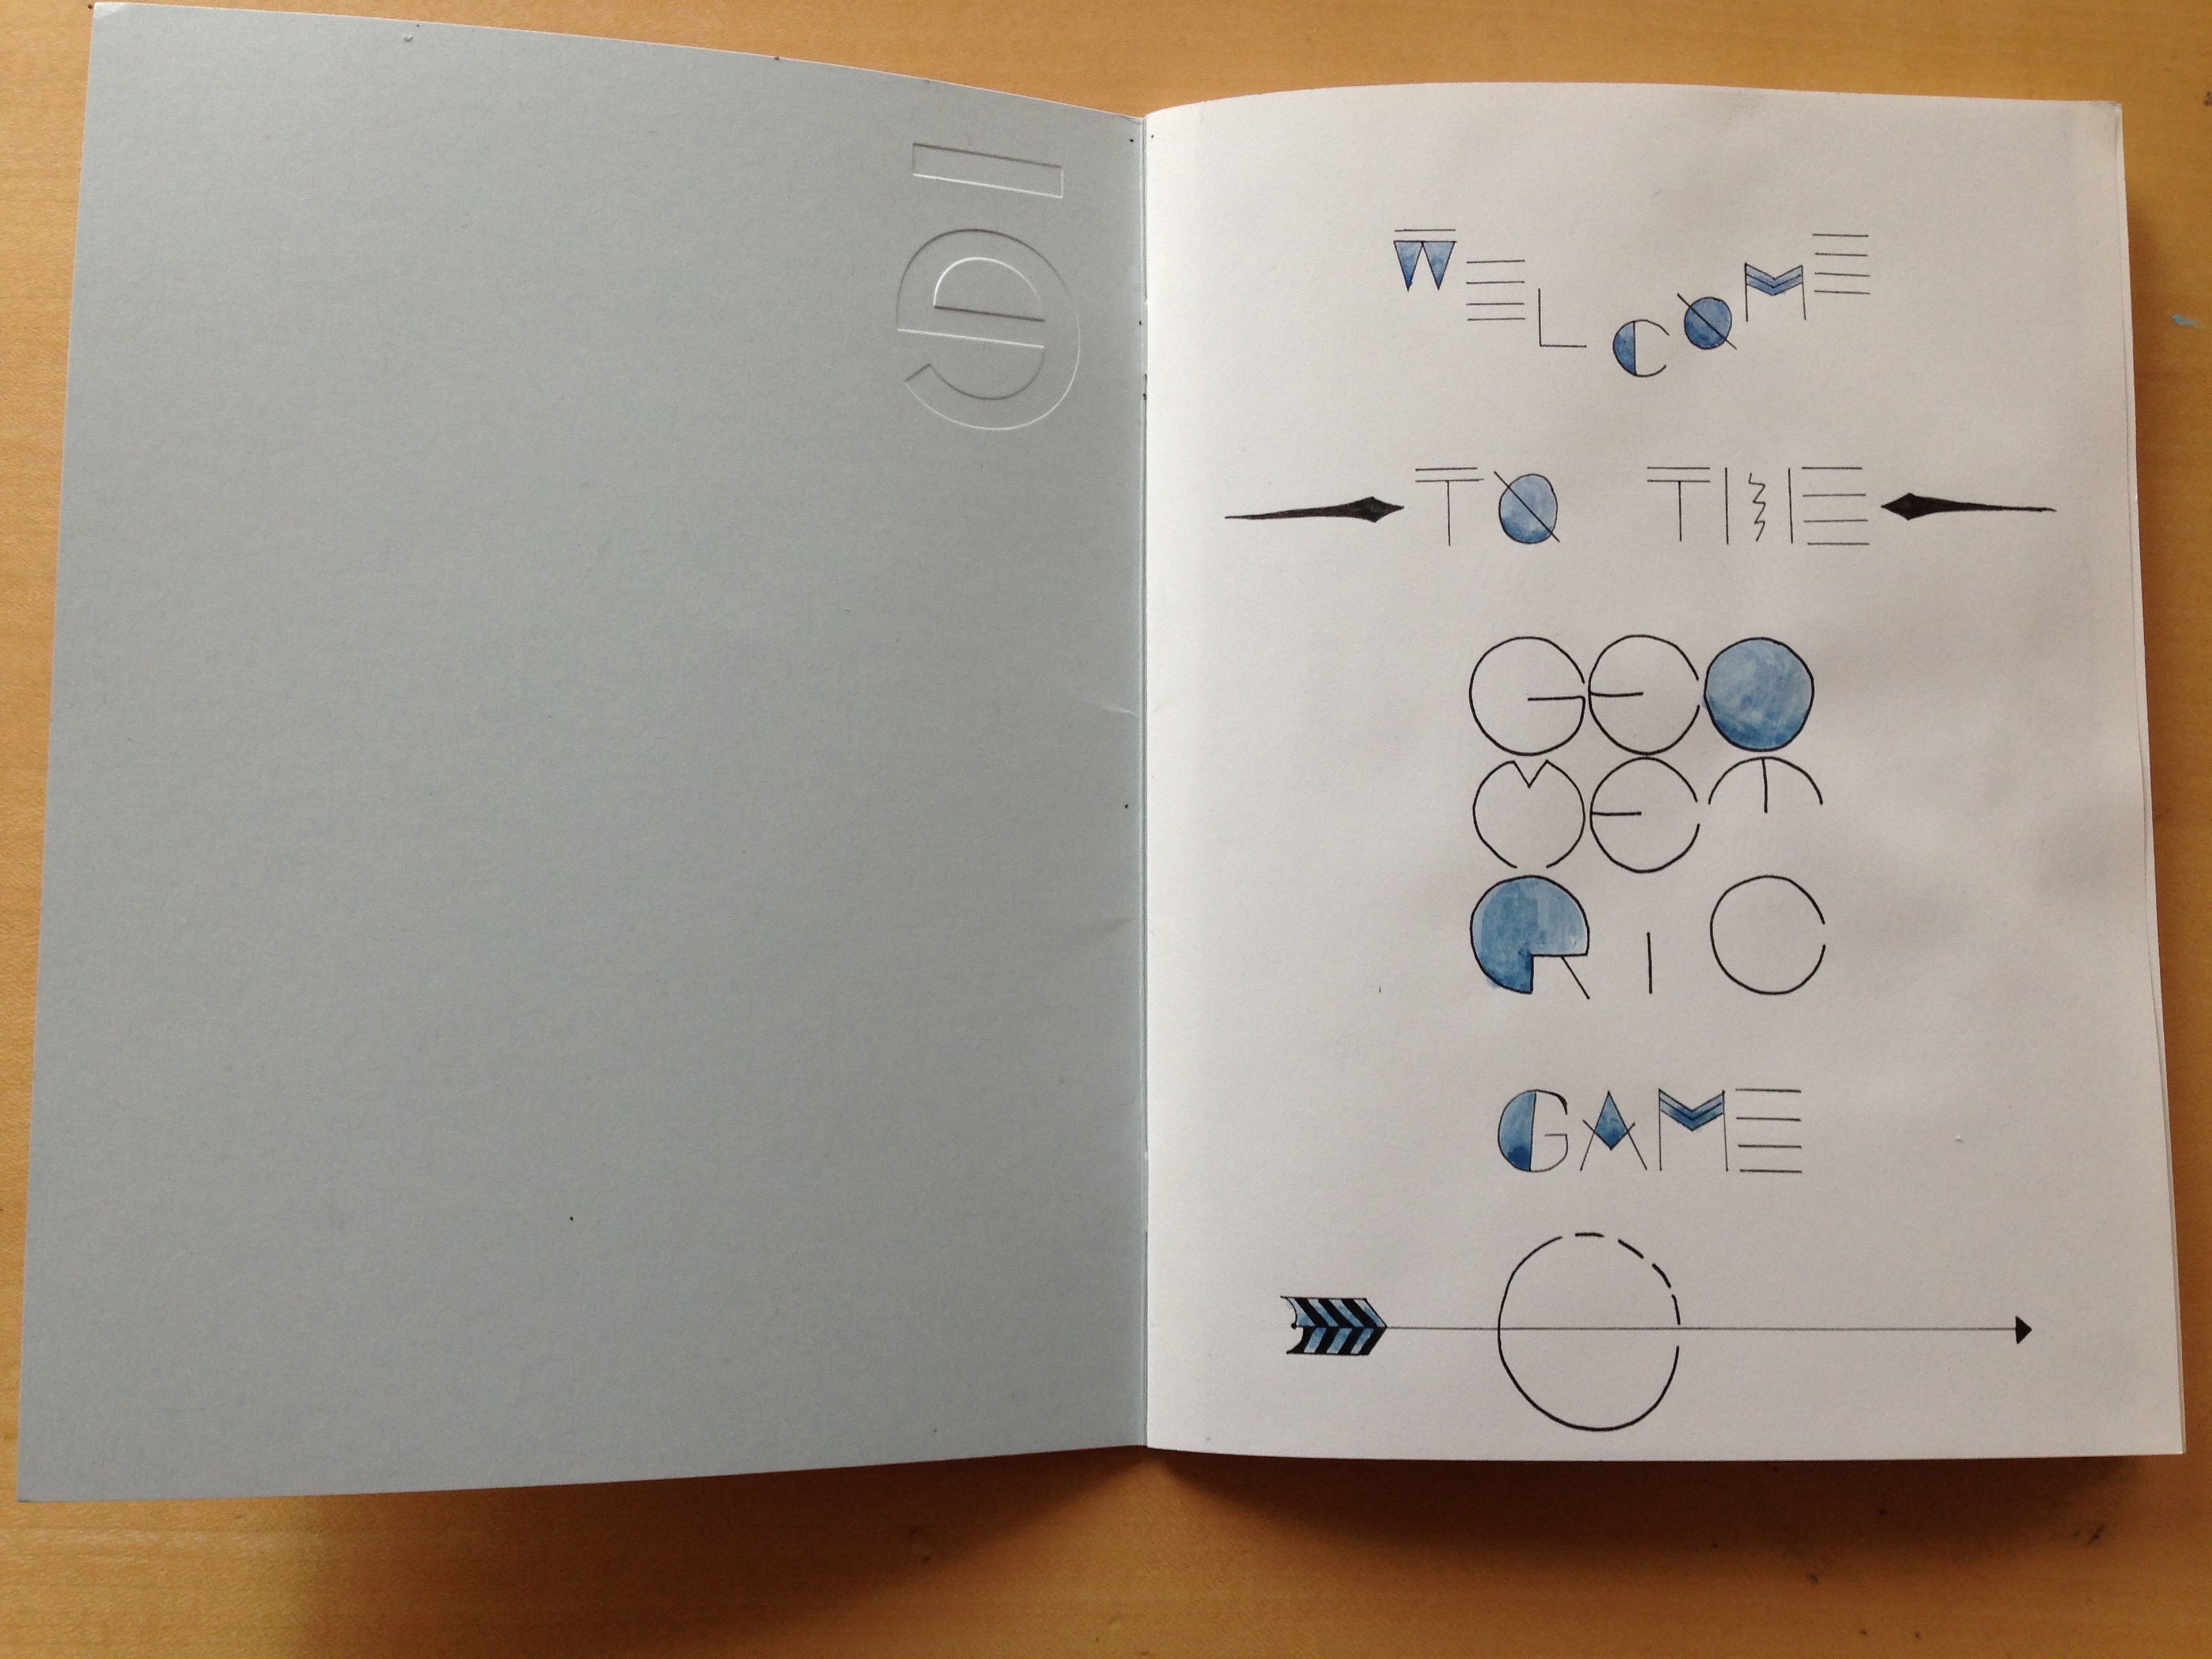 WELCOME
TO THE
GEO
MET
RIC
GAME